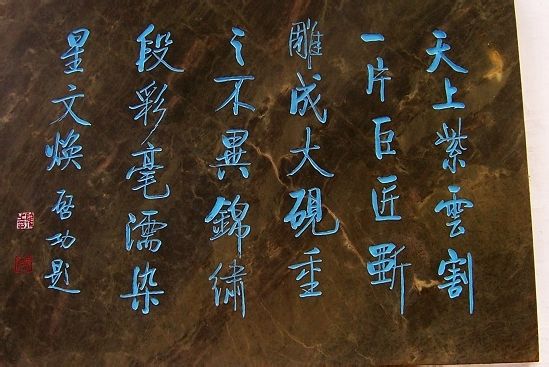 天上紫雲割
一片巨匠斲
雕成大硯垂
之不異錦繡
段彩毫濡染
星文煥啓功題